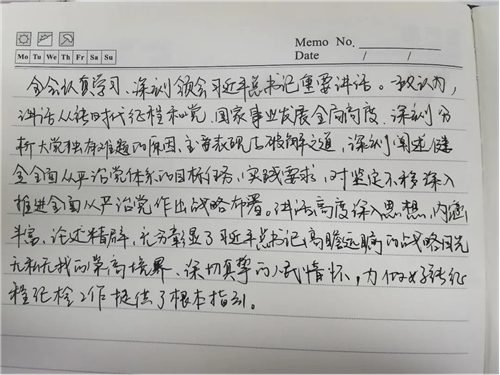 Memo No.
Mo Tu We Th Fr Sa Su
Date / /
全会认真学习、深刻领会习近平总书记重要讲话。一致认为，
讲话从新时代征程和党、国家事业发展全局高度、深刻分
析大党独有难题的原因、主要表现与破解之道，深刻阐述健
全全面从严治党体系的目标任务、实践要求，对坚定不移深入
推进全面从严治党作出战略部署。讲话高度深入思想、内涵
丰富、论述精辟，充分彰显了习近平总书记高瞻远瞩的战略目光
无私无我的崇高境界、深切真挚的人民情怀，为做好新征
程纪检工作提供了根本指引。